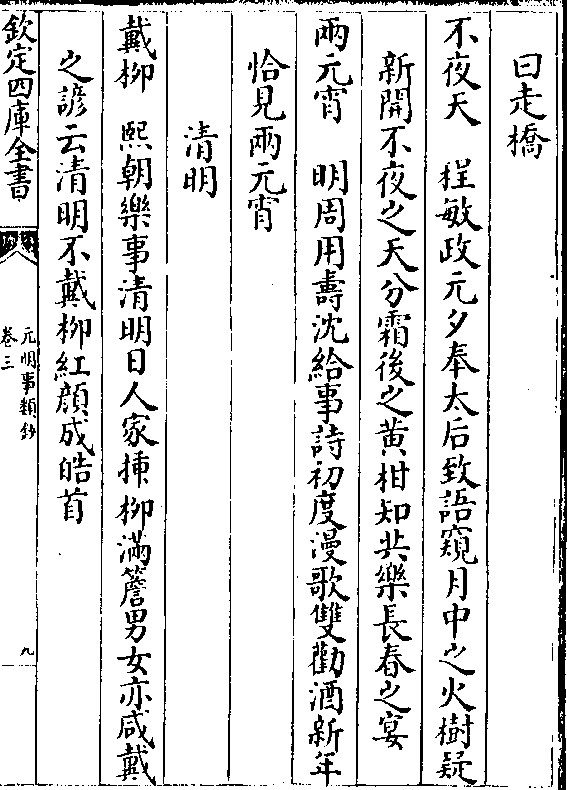 曰走橋
不夜天　程敏政元夕奉太后致語窺月中之火樹疑
新開不夜之天分霜後之黄柑知共樂長春之宴
兩元宵　明周用壽沈給事詩初度漫歌雙勸酒新年
恰見兩元宵
清明
戴柳　熙朝樂事清明日人家揷柳滿簷男女亦咸戴
之諺云清明不戴柳紅顔成皓首
欽定四庫全書
元明事類鈔
卷三
九